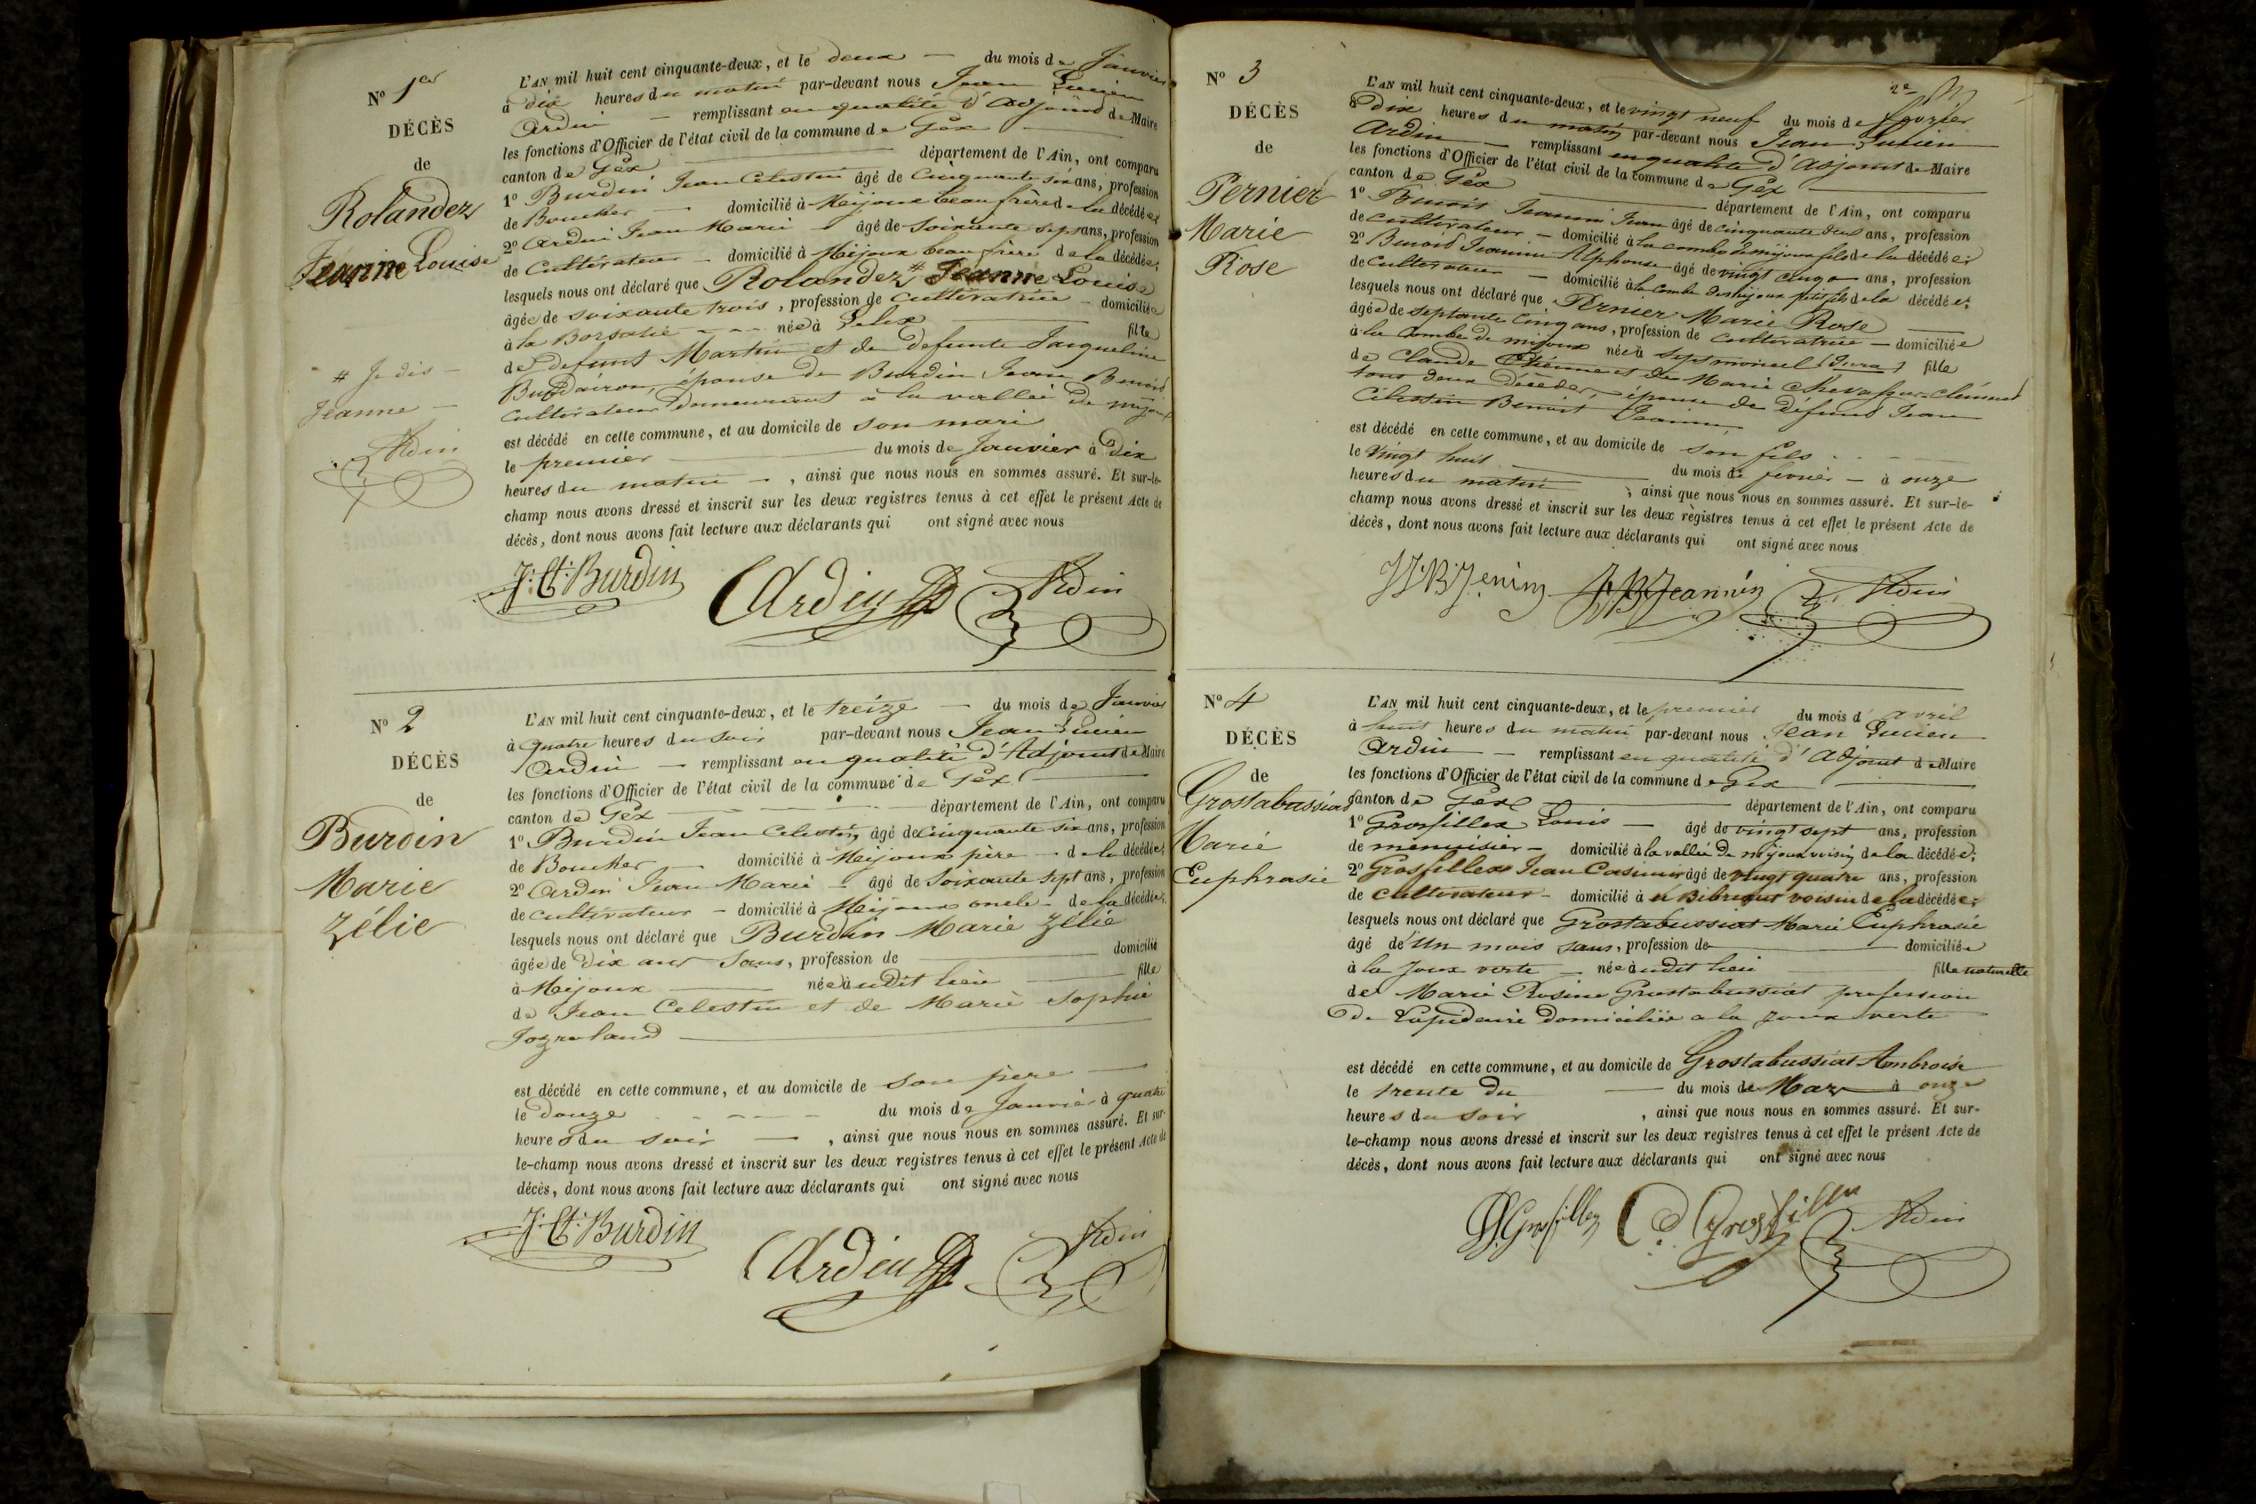 N.º 1er
DÉCÈS
de
Rolandez
Jeanne Louise
# Je dis —
Jeanne —
Ardin
L'AN mil huit cent cinquante-deux, et le deux — du mois de Janvier
à dix heures du matin par-devant nous Jean Lucien
Ardin — remplissant en qualité d'Adjoint de Maire
les fonctions d'Officier de l'état civil de la commune de Gex
canton de Gex — département de l'Ain, ont comparu
1º Burdin Jean Célestin âgé de Cinquante six ans, profession
de Boucher — domicilié à Mijoux beau frère de la décédée;
2º Ardin Jean Marie âgé de Soixante sept ans, profession
de Cultivateur — domicilié à Mijoux beau frère de la décédée;
lesquels nous ont déclaré que Rolandez # Jeanne Louise
âgée de soixante trois, profession de cultivatrice — domiciliée
à la née à Lelex fille
de defunt Martin et de defunte Jacqueline
épouse de Burdin Jean Benoit
cultivateur demeurant à la vallée de mijoux
est décédé en cette commune, et au domicile de son mari
le premier — du mois de Janvier à Dix
heures du matin —, ainsi que nous nous en sommes assuré. Et sur-le-
champ nous avons dressé et inscrit sur les deux registres tenus à cet effet le présent Acte de
décès, dont nous avons fait lecture aux déclarants qui ont signé avec nous
J. Ct. Burdin Ardin Ardin
N.º 2
DÉCÈS
de
Burdin
Marie
Zélie
L'AN mil huit cent cinquante-deux, et le treize — du mois de Janvier
à quatre heures du soir par-devant nous Jean Lucien
Ardin — remplissant en qualité d'Adjoint de Maire
les fonctions d'Officier de l'état civil de la commune de Gex
canton de Gex — département de l'Ain, ont comparu
1º Burdin Jean Celestin âgé de cinquante six ans, profession
de Boucher — domicilié à Mijoux père — de la décédée;
2º Ardin Jean Marie — âgé de Soixante sept ans, profession
de cultivateur — domicilié à Mijoux oncle — de la décédée;
lesquels nous ont déclaré que Burdin Marie Zélie
âgée de dix ans sans, profession de — domicilié
à Mijoux — née audit lieu — fille
de Jean Celestin et de Marie Sophie
est décédé en cette commune, et au domicile de son père —
le douze — du mois de Janvier à quatre
heures du soir —, ainsi que nous nous en sommes assuré. Et sur-
le-champ nous avons dressé et inscrit sur les deux registres tenus à cet effet le présent Acte de
décès, dont nous avons fait lecture aux déclarants qui ont signé avec nous
J. Ct. Burdin Ardin Ardin
2e
N.º 3
DÉCÈS
de
Pernier
Marie
Rose
L'AN mil huit cent cinquante-deux, et le vingt neuf du mois de fevrier
à dix heures du matin par-devant nous Jean Lucien
Ardin — remplissant en qualité d'adjoint de Maire
les fonctions d'Officier de l'état civil de la commune de Gex
canton de Gex — département de l'Ain, ont comparu
1º Benoit Jeannin Jean âgé de cinquante deux ans, profession
de cultivateur — domicilié à la combe de mijoux fils de la décédée;
2º Benoit Jeannin Alphonse âgé de vingt cinq ans, profession
de cultivateur — domicilié à la Combe de mijoux petit fils de la décédée;
lesquels nous ont déclaré que Pernier Marie Rose —
âgée de septante cinq ans, profession de cultivatrice — domiciliée
à la Combe de mijoux née à Septmoncel (Jura) fille
de Claude Etienne et de Marie Chevassus-Clément
tous deux décédés, épouse de défunt Jean
Célestin Benoit Jeannin
est décédé en cette commune, et au domicile de son fils
le vingt huit — du mois de fevrier — à onze
heures du matin, ainsi que nous nous en sommes assuré. Et sur-le-
champ nous avons dressé et inscrit sur les deux règistres tenus à cet effet le présent Acte de
décès, dont nous avons fait lecture aux déclarants qui ont signé avec nous
Ardin
N.º 4
DÉCÈS
de
Grostabussiat
Marie
Euphrasie
L'AN mil huit cent cinquante-deux, et le premier du mois d'avril
à huit heures du matin par-devant nous Jean Lucien
Ardin — remplissant en qualité d'Adjoint de Maire
les fonctions d'Officier de l'état civil de la commune de Gex
canton de Gex — département de l'Ain, ont comparu
1º Grosfillex Louis — âgé de vingt sept ans, profession
de menuisier — domicilié à la vallée de mijoux voisin de la décédée;
2º Grosfillex Jean Casimir âgé de vingt quatre ans, profession
de cultivateur — domicilié à voisin de la décédée;
lesquels nous ont déclaré que Grostabussiat Marie Euphrasie
âgé de un mois sans, profession de — domiciliée
à la Joux verte — née audit lieu fille naturelle
de Marie Rosine Grostabussiat profession
de Lapidaire domiciliée a la Joux verte
est décédé en cette commune, et au domicile de Grostabussiat Ambroise
le trente du — du mois de Mars à onze
heures du soir, ainsi que nous nous en sommes assuré. Et sur-
le-champ nous avons dressé et inscrit sur les deux registres tenus à cet effet le présent Acte de
décès, dont nous avons fait lecture aux déclarants qui ont signé avec nous
L. Grosfillex C. Grosfillex Ardin